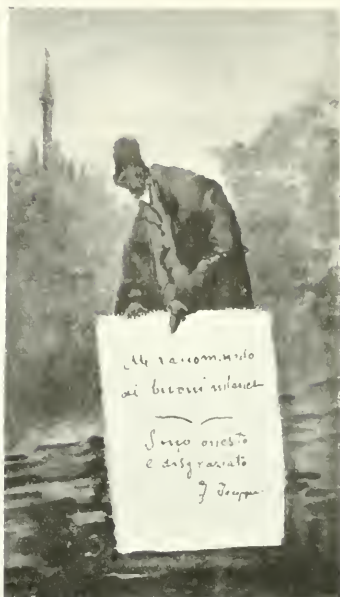 Mi racomando
ai buoni milanesi
Sono onesto
e disgraziato